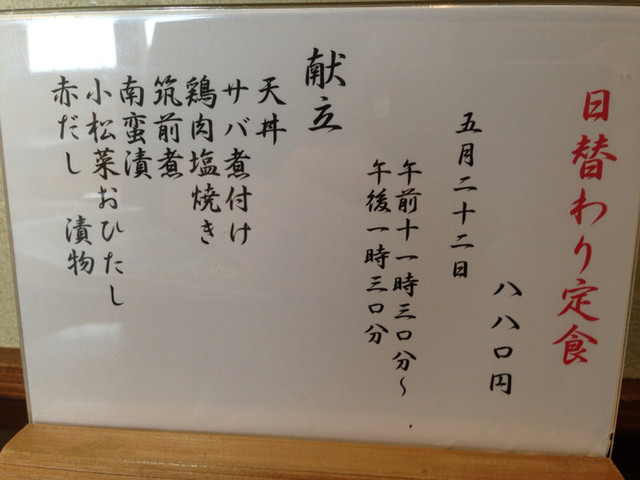 日替わり定食
八八〇円
五月二十二日
午前十一時三〇分～
午後一時三〇分
献立
天丼
サバ煮付け
鶏肉塩焼き
筑前煮
南蛮漬
小松菜おひたし
赤だし　漬物